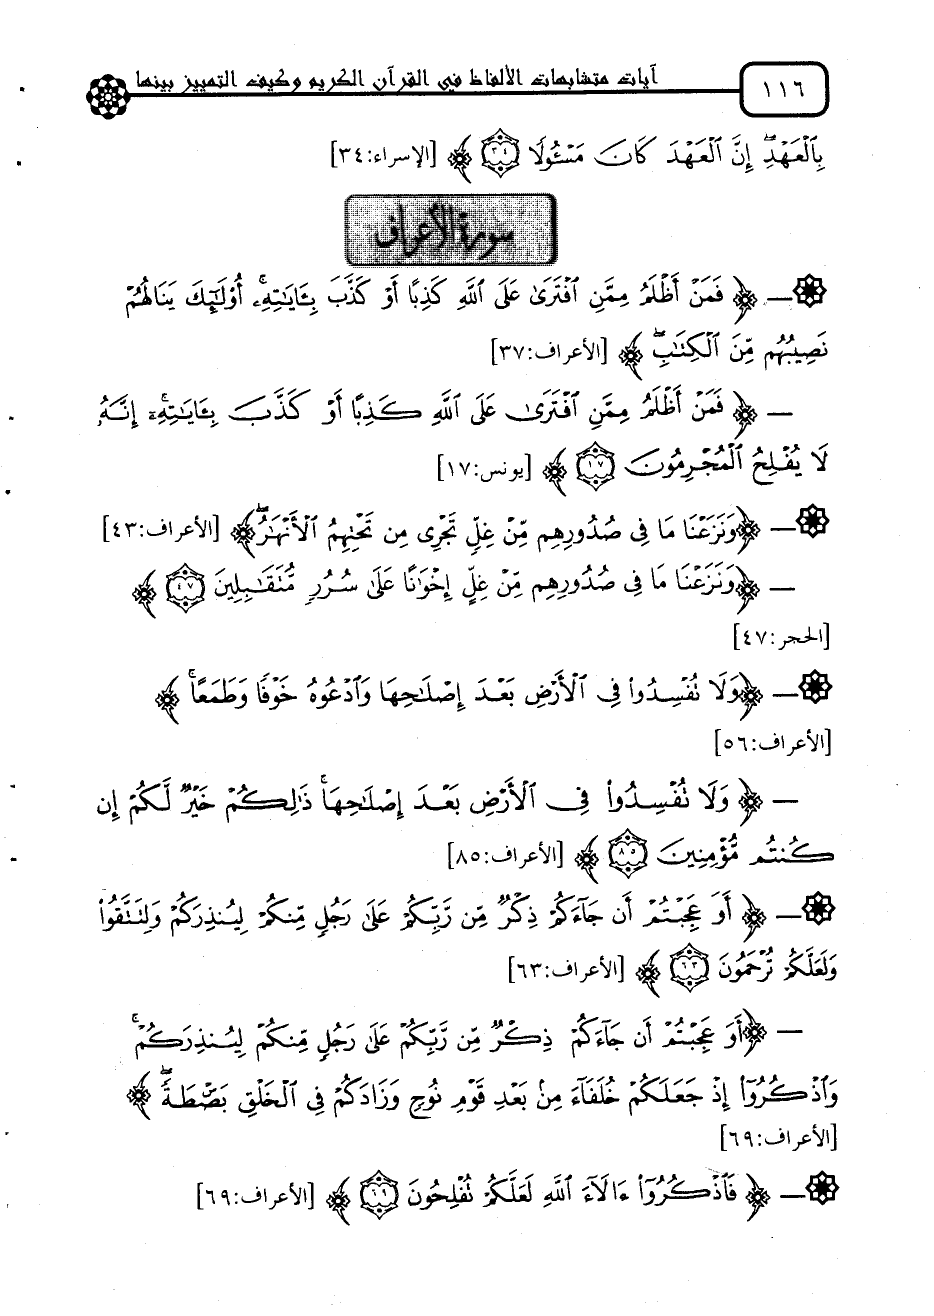 ١١٦
آيات متشابهات الألفاظ في القرآن الكريم وكيف التمييز بينها
بِالْعَهْدِ ۖ إِنَّ الْعَهْدَ كَانَ مَسْئُولًا ٣٤ ﴾ [الإسراء:٣٤]
سورة الأعراف
— ﴿ فَمَنْ أَظْلَمُ مِمَّنِ افْتَرَىٰ عَلَى اللَّهِ كَذِبًا أَوْ كَذَّبَ بِـَٔايَـٰتِهِۦٓ ۚ أُو۟لَـٰٓئِكَ يَنَالُهُمْ
نَصِيبُهُم مِّنَ الْكِتَـٰبِ ۖ ﴾ [الأعراف:٣٧]
— ﴿ فَمَنْ أَظْلَمُ مِمَّنِ افْتَرَىٰ عَلَى اللَّهِ كَذِبًا أَوْ كَذَّبَ بِـَٔايَـٰتِهِۦٓ ۚ إِنَّهُۥ
لَا يُفْلِحُ الْمُجْرِمُونَ ١٧ ﴾ [يونس:١٧]
— ﴿ وَنَزَعْنَا مَا فِى صُدُورِهِم مِّنْ غِلٍّ تَجْرِى مِن تَحْتِهِمُ الْأَنْهَـٰرُ ۖ ﴾ [الأعراف:٤٣]
— ﴿ وَنَزَعْنَا مَا فِى صُدُورِهِم مِّنْ غِلٍّ إِخْوَٰنًا عَلَىٰ سُرُرٍ مُّتَقَـٰبِلِينَ ٤٧ ﴾
[الحجر:٤٧]
— ﴿ وَلَا تُفْسِدُوا۟ فِى الْأَرْضِ بَعْدَ إِصْلَـٰحِهَا وَادْعُوهُ خَوْفًا وَطَمَعًا ۚ ﴾
[الأعراف:٥٦]
— ﴿ وَلَا تُفْسِدُوا۟ فِى الْأَرْضِ بَعْدَ إِصْلَـٰحِهَا ۚ ذَٰلِكُمْ خَيْرٌ لَّكُمْ إِن
كُنتُم مُّؤْمِنِينَ ٨٥ ﴾ [الأعراف:٨٥]
— ﴿ أَوَ عَجِبْتُمْ أَن جَآءَكُمْ ذِكْرٌ مِّن رَّبِّكُمْ عَلَىٰ رَجُلٍ مِّنكُمْ لِيُنذِرَكُمْ وَلِتَتَّقُوا۟
وَلَعَلَّكُمْ تُرْحَمُونَ ٦٣ ﴾ [الأعراف:٦٣]
— ﴿ أَوَ عَجِبْتُمْ أَن جَآءَكُمْ ذِكْرٌ مِّن رَّبِّكُمْ عَلَىٰ رَجُلٍ مِّنكُمْ لِيُنذِرَكُمْ ۚ
وَاذْكُرُوٓا۟ إِذْ جَعَلَكُمْ خُلَفَآءَ مِنۢ بَعْدِ قَوْمِ نُوحٍ وَزَادَكُمْ فِى الْخَلْقِ بَصْۜطَةً ۖ ﴾
[الأعراف:٦٩]
— ﴿ فَاذْكُرُوٓا۟ ءَالَآءَ اللَّهِ لَعَلَّكُمْ تُفْلِحُونَ ٦٩ ﴾ [الأعراف:٦٩]